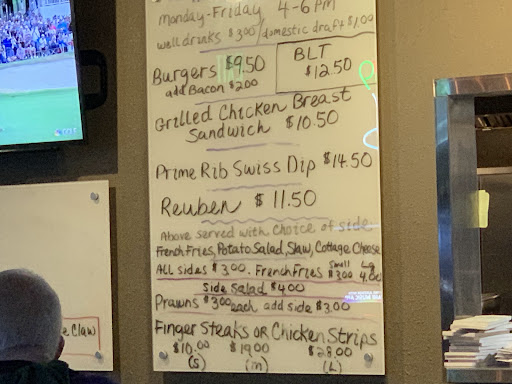 Monday-Friday 4-6 PM
well drinks $3.00/domestic draft $1.00
Burgers $9.50
add Bacon $2.00
BLT
$12.50
Grilled Chicken Breast
Sandwich $10.50
Prime Rib Swiss Dip $14.50
Reuben $11.50
Above served with choice of side
French Fries, Potato Salad, Slaw, Cottage Cheese
All sides $3.00. French Fries Small $3.00 Lg 4.00
Side Salad $4.00
Prawns $3.00 each add side $3.00
Finger Steaks or Chicken Strips
$10.00 $19.00 $28.00
(S) (m) (L)
e Claw